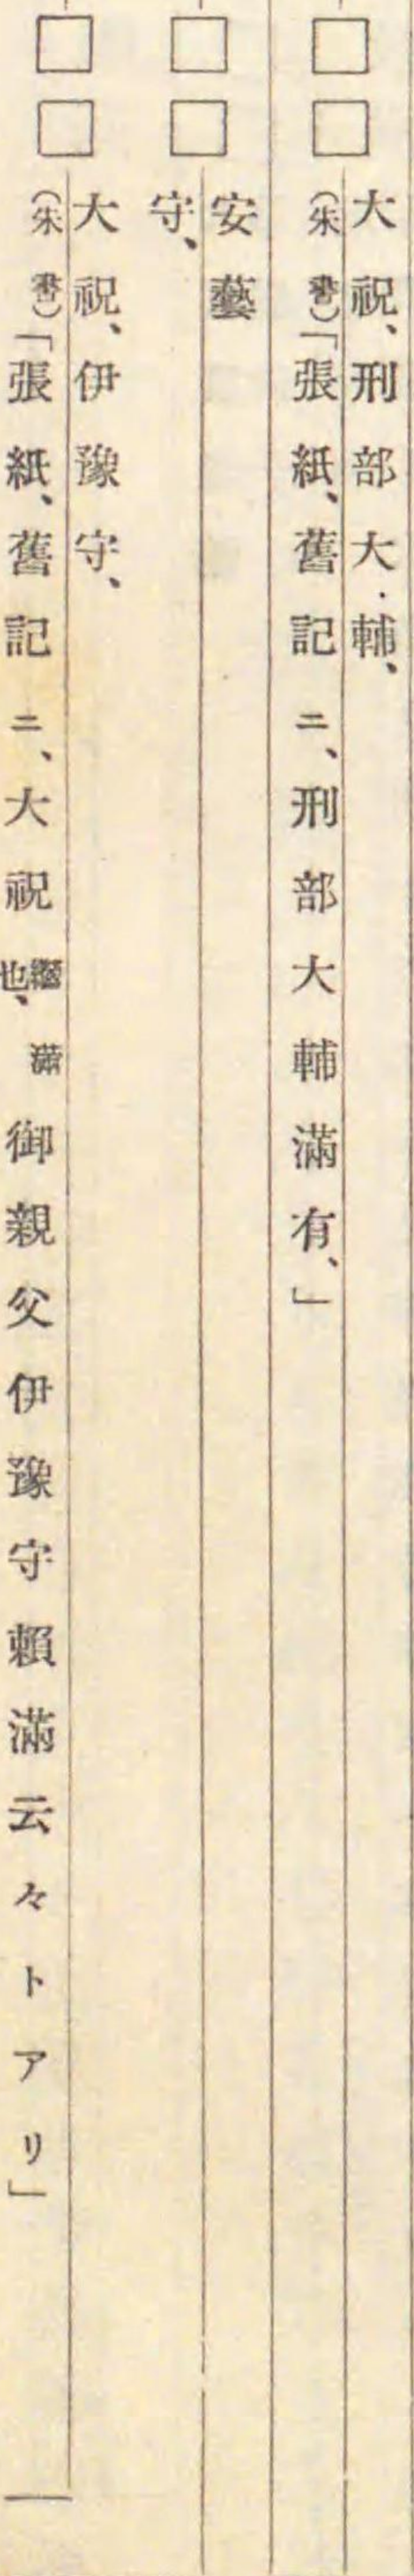 □□大祝、刑部大輔、
(朱書)「張紙、舊記ニ、刑部大輔滿有、」
□□安藝
守、
□□大祝、伊豫守、
(朱書)「張紙、舊記ニ、大祝繼滿也、御親父伊豫守賴滿云々トアリ」